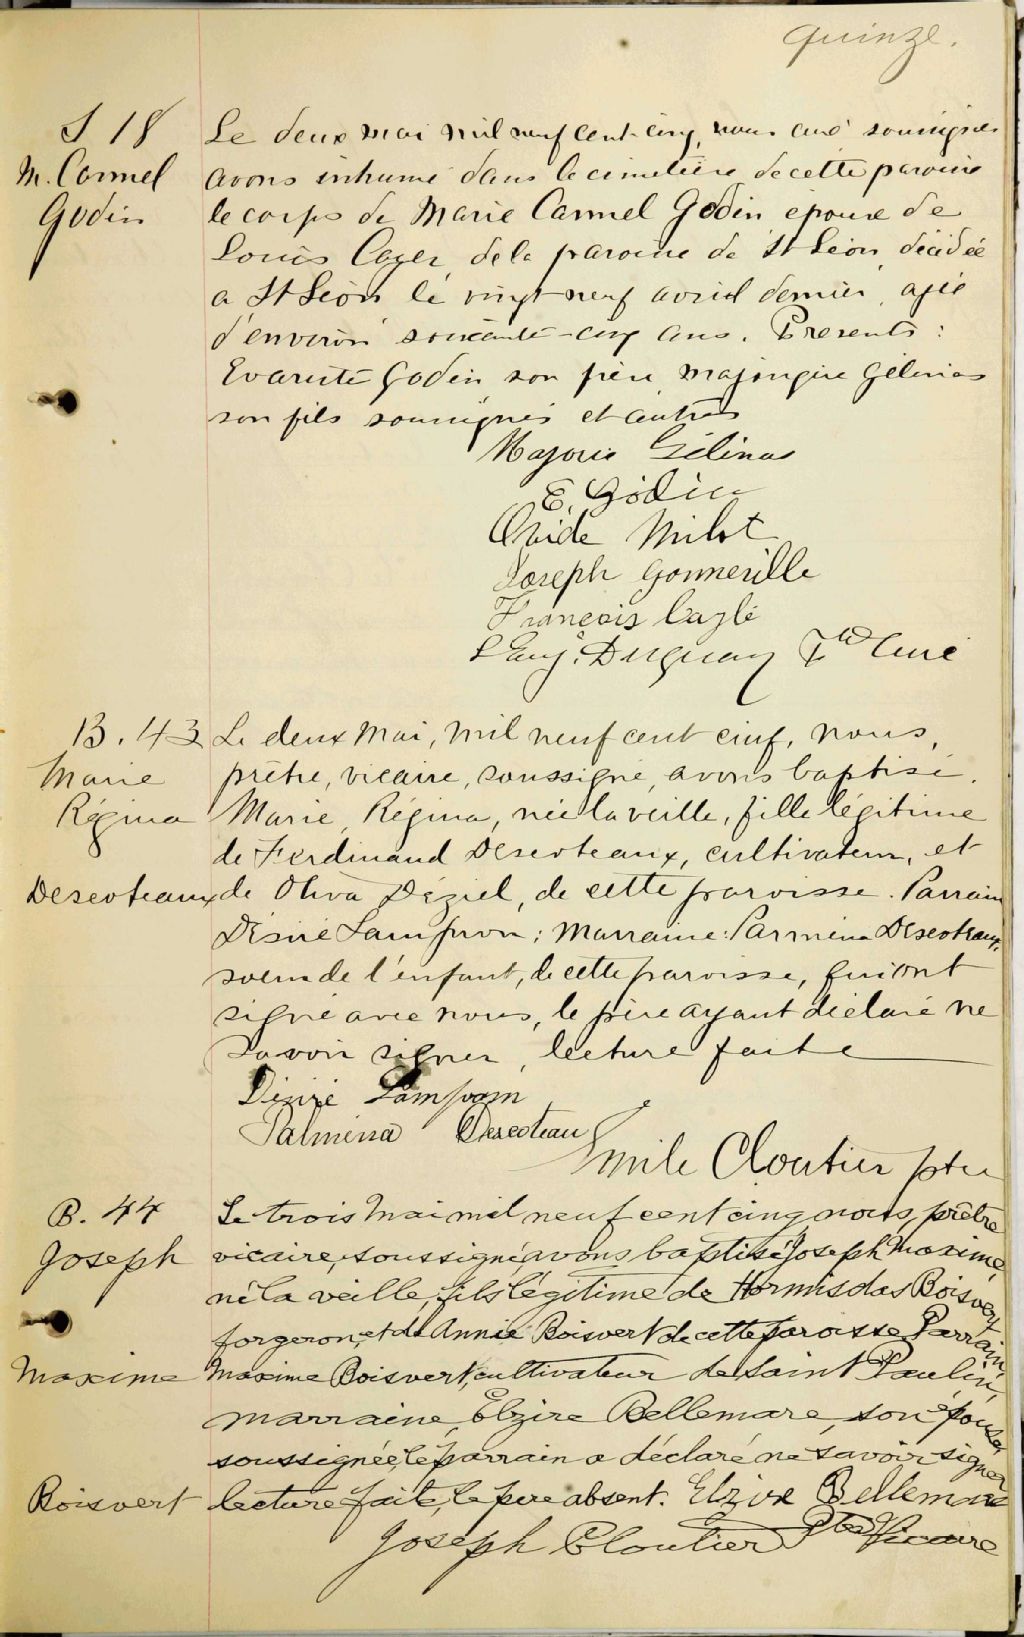 quinze.
S 18
M. Carmel
Godin
Le deux mai mil neuf cent cinq, nous curé soussigné
avons inhumé dans le cimetière de cette paroisse
le corps de Marie Carmel Godin épouse de
Louis Cayer de la paroisse de St Léon décédée
a St Léon le vingt neuf avril dernier, agée
d'environ soixante-cinq ans. Presents :
Evariste Godin son frère Gélinas
son fils soussignés et autres
Majoric Gélinas
E. Godin
Ovide Milot
Joseph Gonneville
François Caylé
L Eug. Duguay Ptre Curé
B. 43
Marie
Régina
Descoteaux
Le deux Mai, mil neuf cent cinq, nous,
prêtre, vicaire, soussigné, avons baptisé
Marie, Régina, née la veille, fille légitime
de Ferdinand Descoteaux, cultivateur, et
de Oliva Déziel, de cette paroisse. Parrain
Désiré Lampron; Marraine: Parmena Descoteaux,
soeur de l'enfant, de cette paroisse, qui ont
signé avec nous, le père ayant déclaré ne
savoir signer, lecture faite
Désiré Lampron
Palmena Descoteau
Emile Cloutier ptre
B. 44
Joseph
Maxime
Boisvert
Le trois Mai mil neuf cent cinq nous, prêtre
vicaire, soussigné avons baptisé Joseph Maxime,
né la veille, fils légitime de Hormisdas Boisvert
forgeron, et de Annie Boisvert de cette paroisse Parrain,
Maxime Boisvert, cultivateur de Saint Paulin,
marraine, Elzire Bellemare, son épouse,
soussignée, le parrain a déclaré ne savoir signer
lecture faite, le pere absent. Elzire Bellemare
Joseph Cloutier Ptre Vicaire